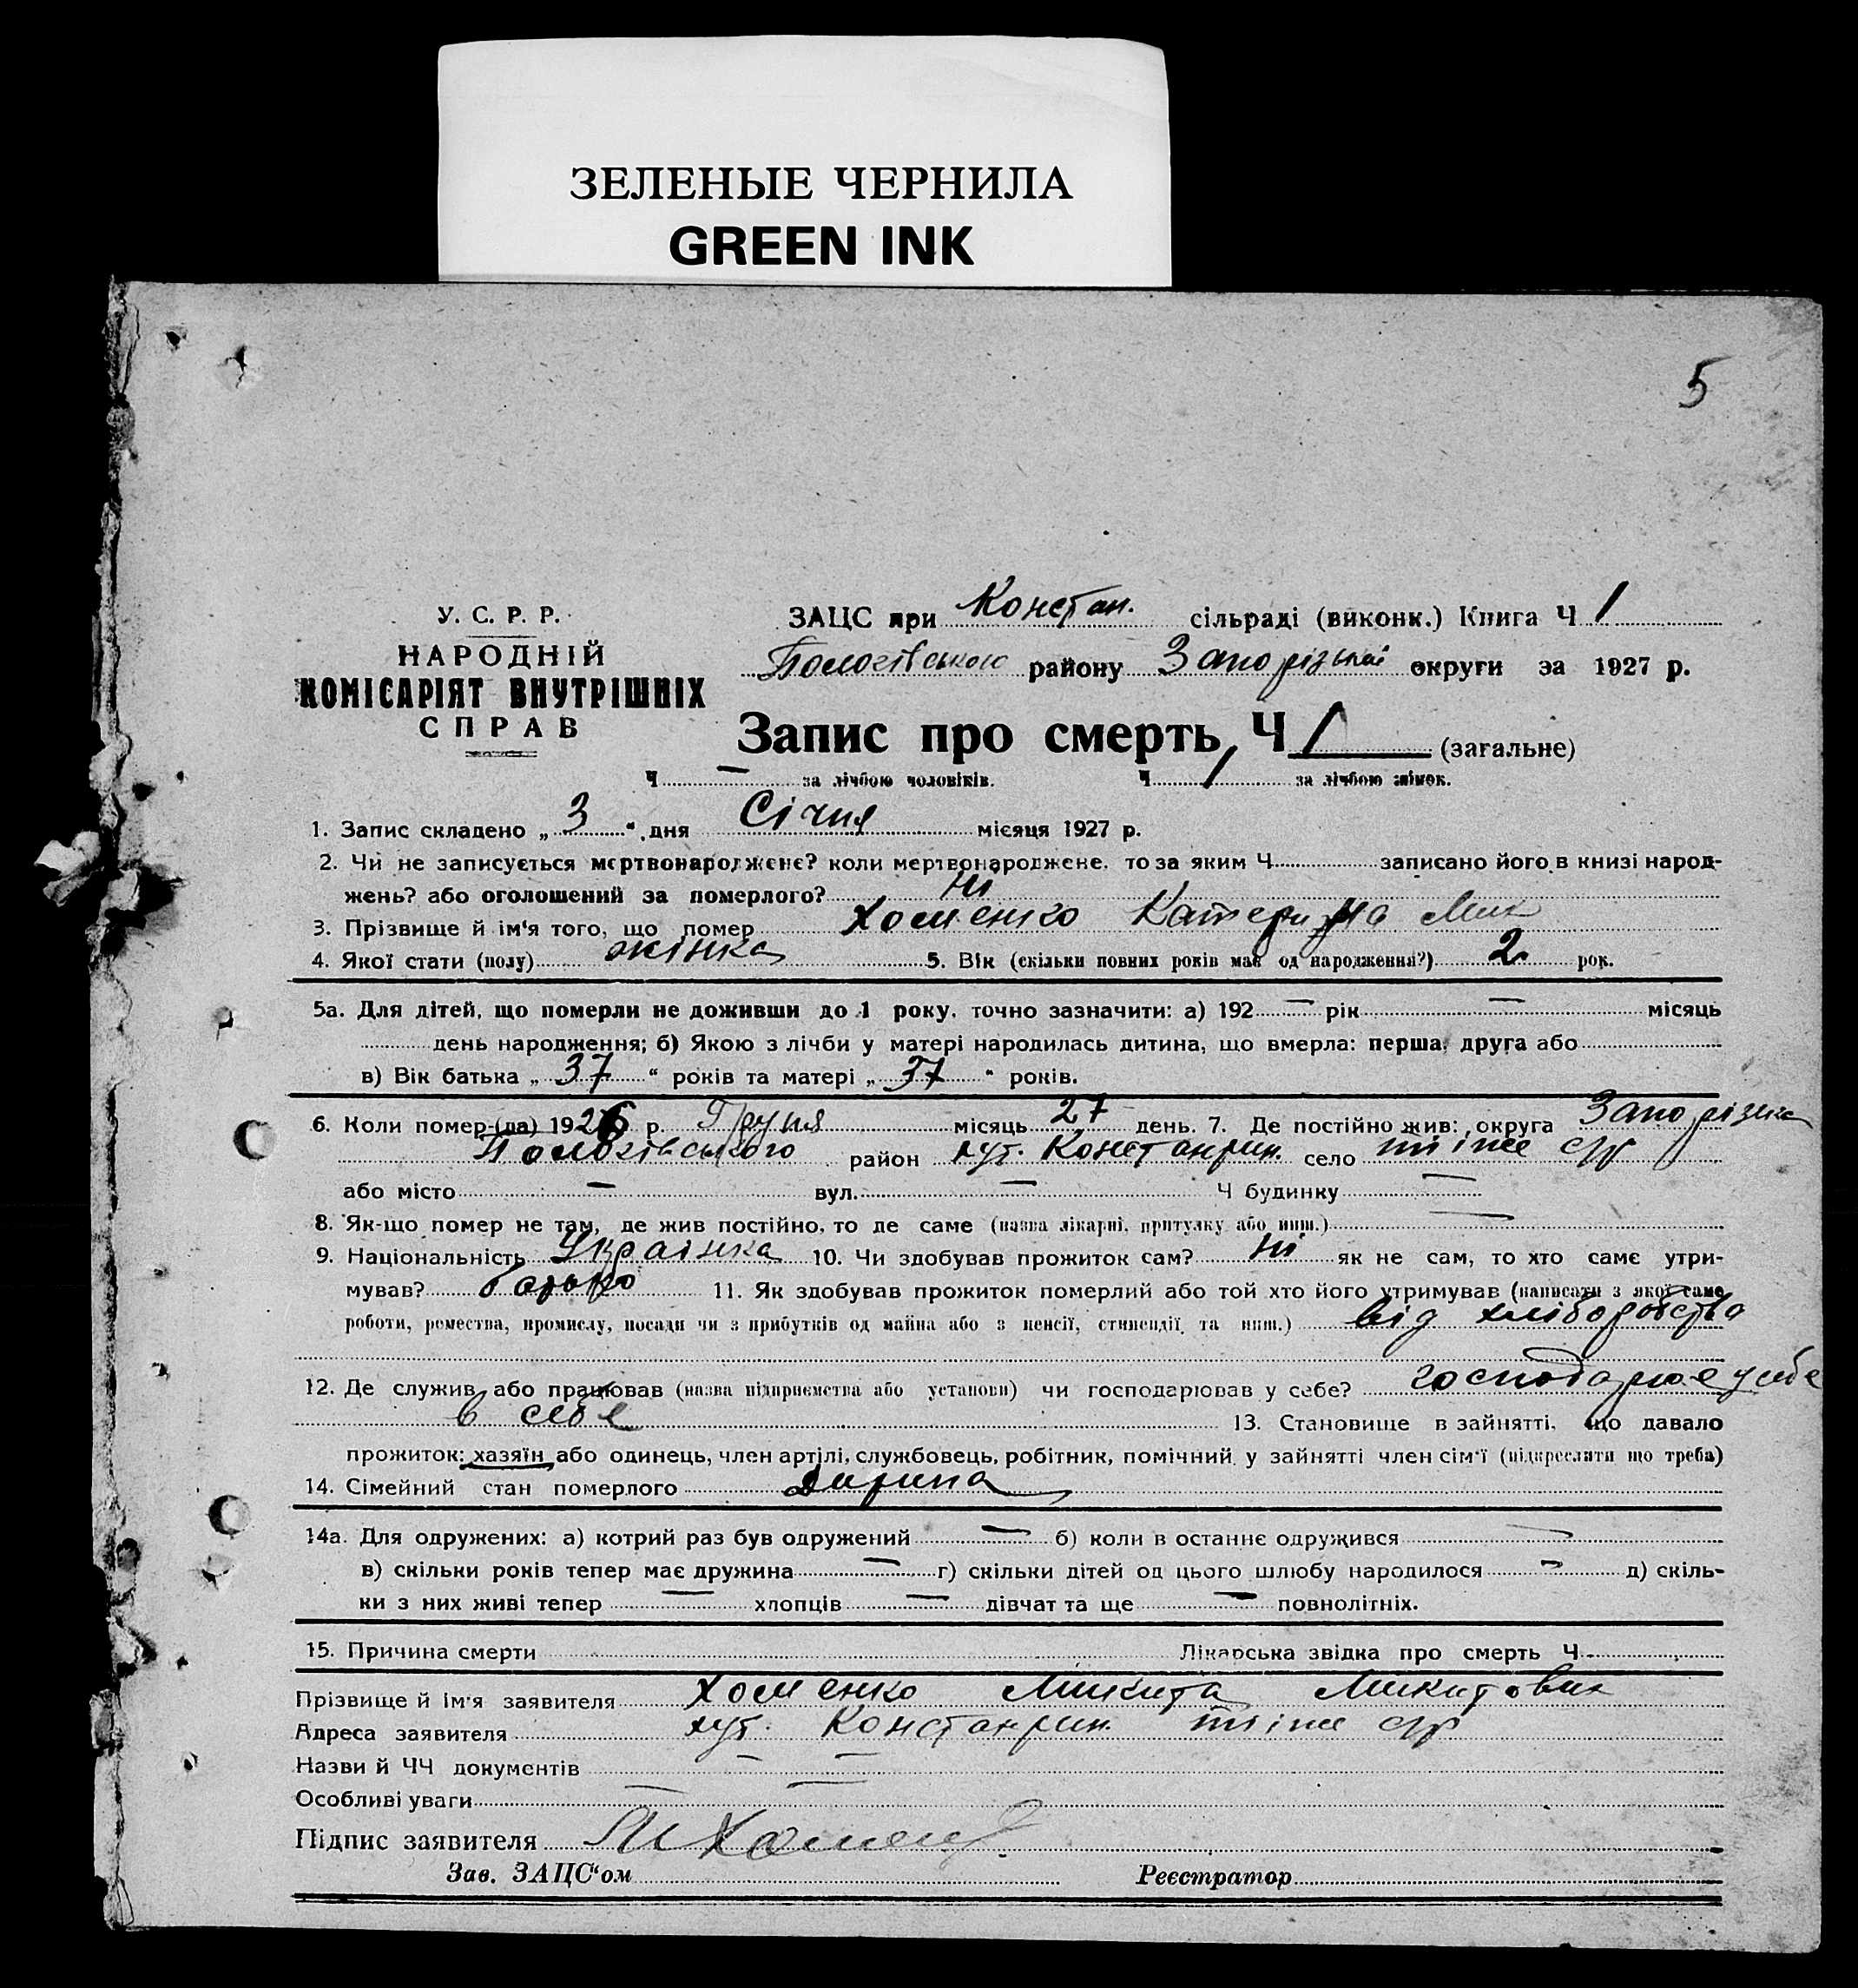 ЗЕЛЕНЫЕ ЧЕРНИЛА
GREEN INK
5
У. С. Р. Р.
НАРОДНІЙ
КОМІСАРІЯТ ВНУТРІШНІХ
СПРАВ
ЗАЦС при Констан. сільраді (виконк.) Книга Ч 1
Пологівського району Запорізької округи за 1927 р.
Запис про смерть, Ч 1 (загальне)
Ч — за лічбою чоловіків. Ч 1 за лічбою жінок.
1. Запис складено „ 3 “ дня Січня місяця 1927 р.
2. Чи не записується мертвонароджене? коли мертвонароджене, то за яким Ч записано його в книзі народ-
жень? або оголошений за померлого? Ні
3. Прізвище й ім'я того, що помер Хоменко Катерина Мик
4. Якої стати (полу) жінка 5. Вік (скільки повних років мав од народження?) 2 рок.
5а. Для дітей, що померли не доживши до 1 року, точно зазначити: а) 192 — рік — місяць
день народження; б) Якою з лічби у матері народилась дитина, що вмерла: перша, друга або
в) Вік батька „ 37 “ років та матері „ 37 “ років.
6. Коли помер-(ла) 1926 р. Грудня місяць 27 день. 7. Де постійно жив: округа Запорізька
Пологівського район хут. Константин. село тіпе с/р
або місто — вул. — Ч будинку —
8. Як-що помер не там, де жив постійно, то де саме (назва лікарні, притулку або инш.) —
9. Національність Українка 10. Чи здобував прожиток сам? Ні як не сам, то хто саме утри-
мував? батько 11. Як здобував прожиток померлий або той хто його утримував (написати з якої саме
роботи, ремества, промислу, посади чи з прибутків од майна або з пенсії, стипендії та инш.) від хліборобства
12. Де служив або працював (назва підприємства або установи) чи господарював у себе? господарює у себе
в себе 13. Становище в зайнятті, що давало
прожиток: хазяїн або одинець, член артілі, службовець, робітник, помічний у зайнятті член сім'ї (підкреслити що треба)
14. Сімейний стан померлого дитина
14а. Для одружених: а) котрий раз був одружений — б) коли в останнє одружився —
в) скільки років тепер має дружина — г) скільки дітей од цього шлюбу народилося — д) скіль-
ки з них живі тепер — хлопців — дівчат та ще — повнолітніх.
15. Причина смерти Лікарська звідка про смерть Ч
Прізвище й ім'я заявителя Хоменко Микита Микитович
Адреса заявителя хут. Константин. тіпе с/р
Назви й ЧЧ документів — —
Особливі уваги — —
Підпис заявителя М Хоменко
Зав. ЗАЦС'ом Реєстратор